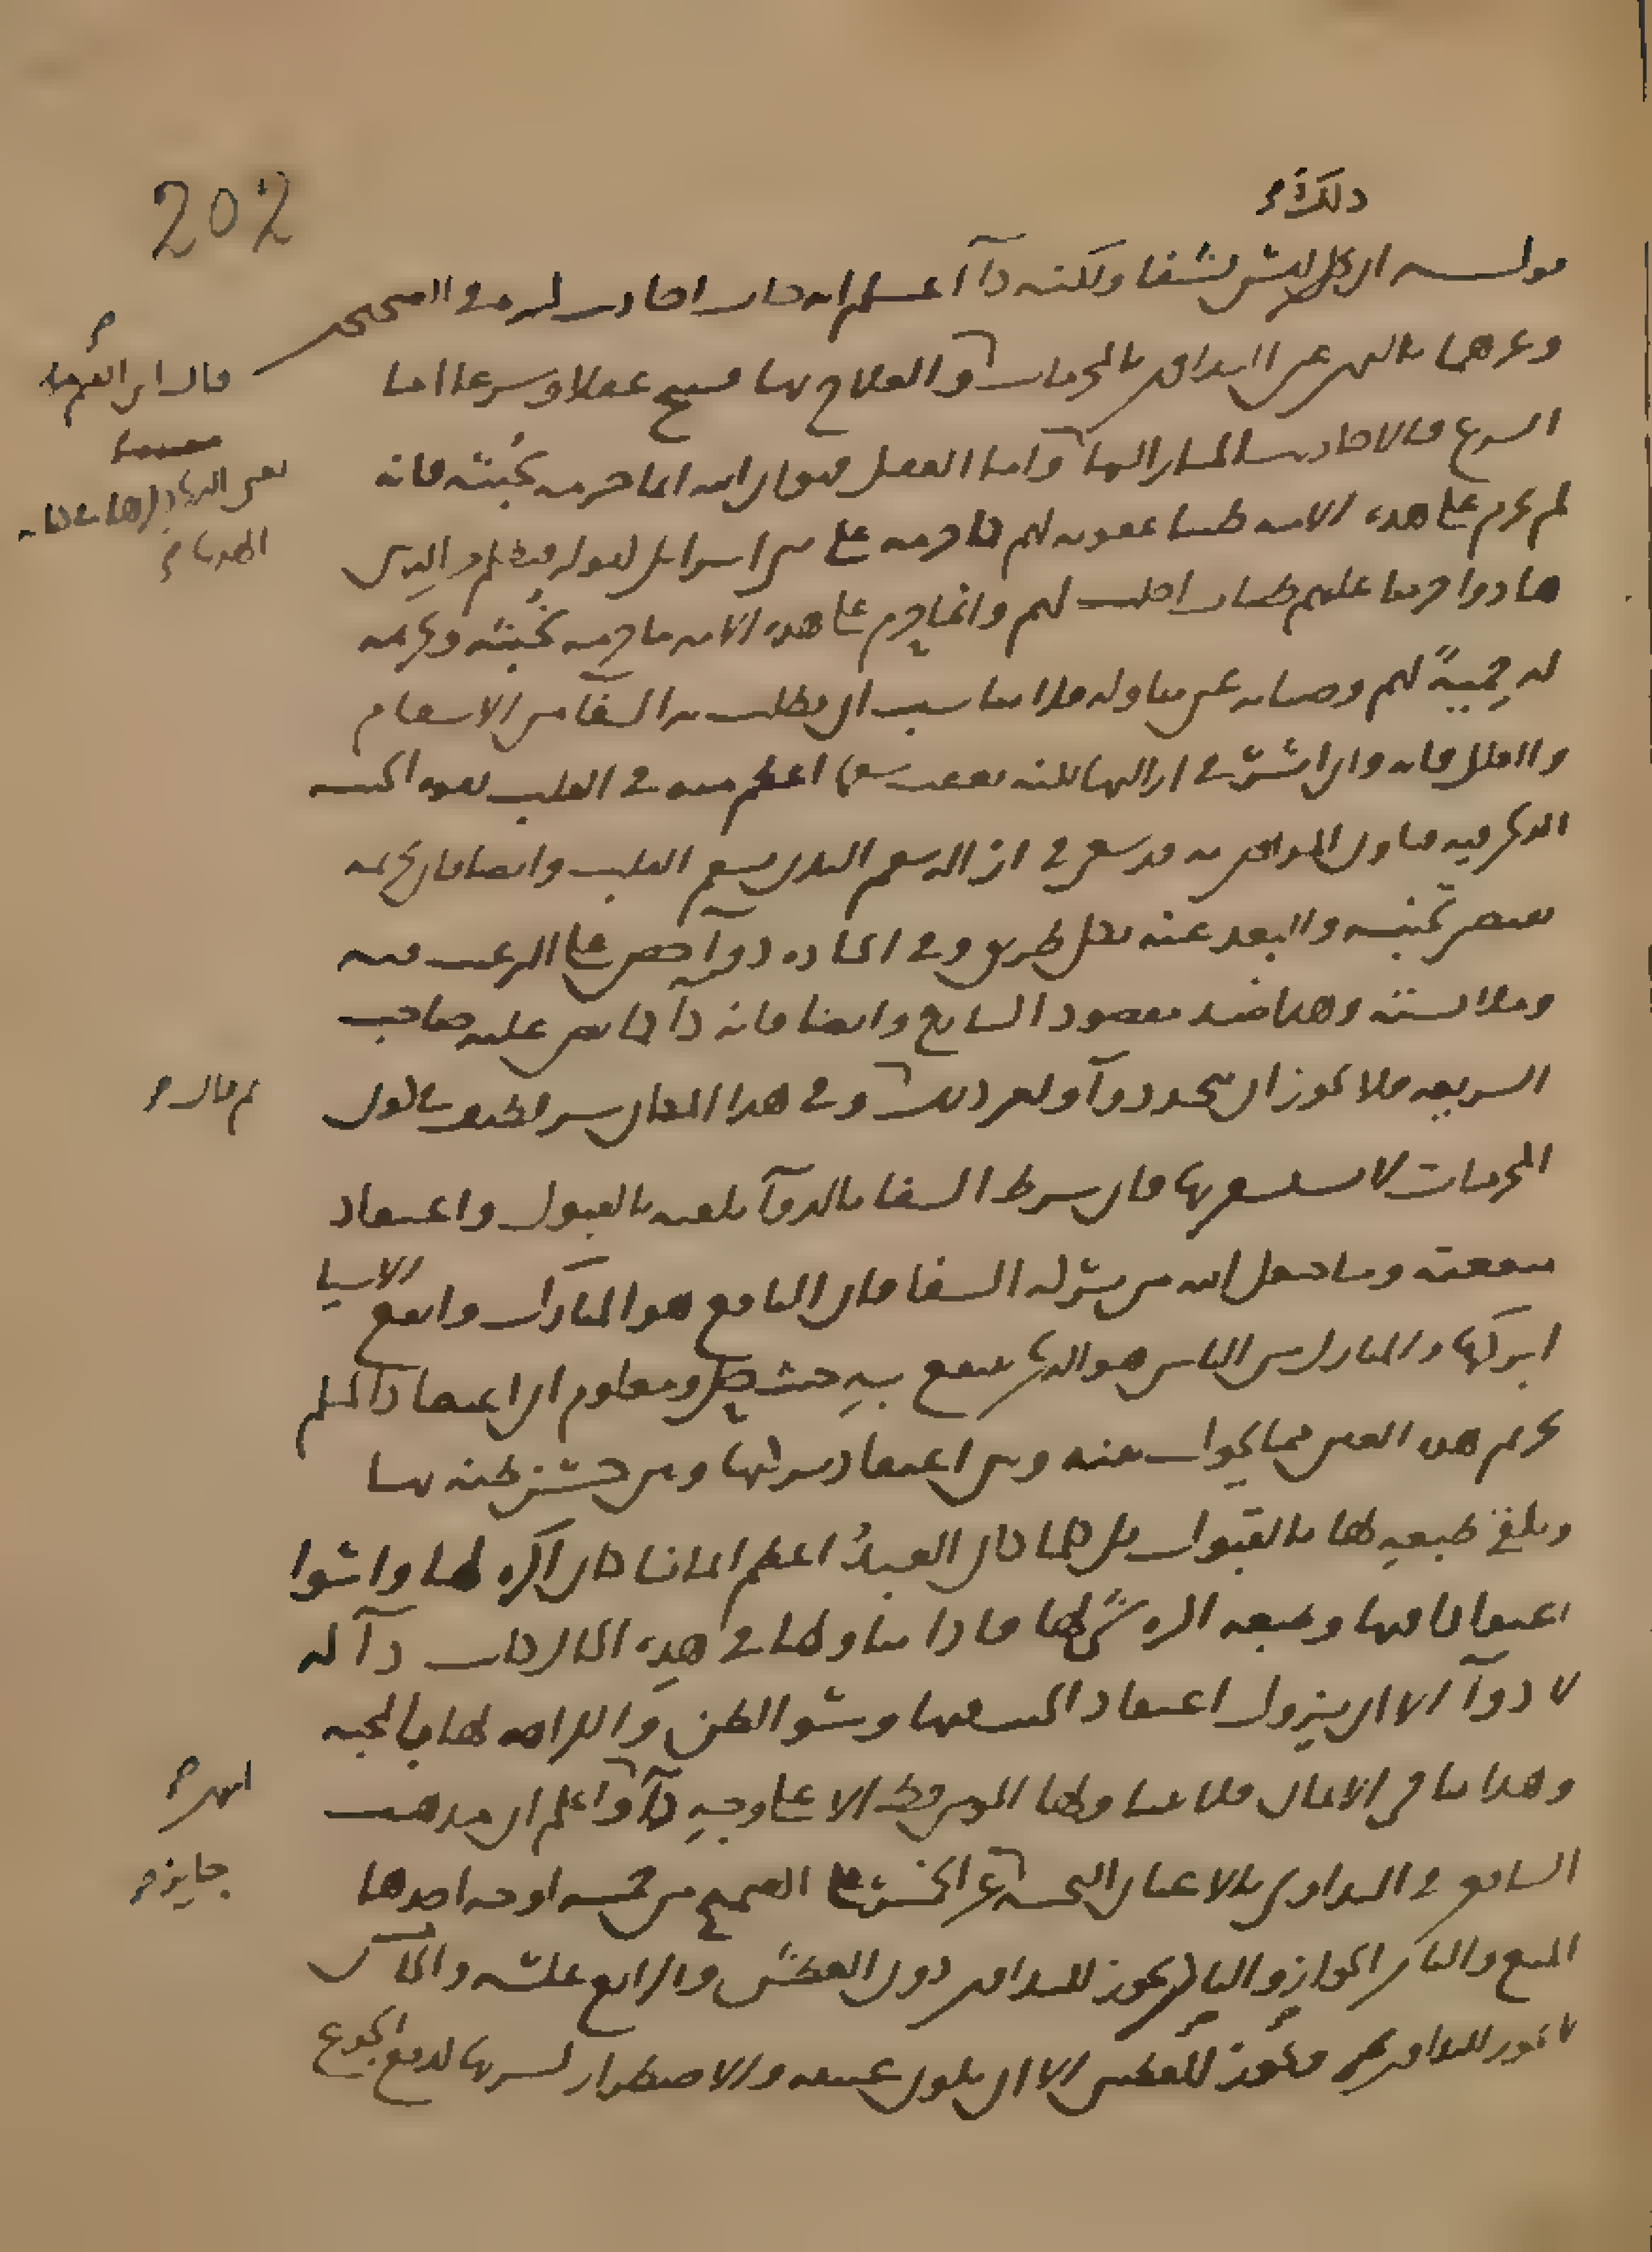 202
ذلك
قوله ان ذلك ليس بشفاء ولكنه داء اعلم انه جاء احاديث كثيرة في الصحيحين
وغيرهما بالنهي عن التداوي بالمحرمات والعلاج بها قبيح عقلا وشرعا اما
قال ابن القيم
الشرع فالاحاديث المشار اليها واما العقل فهو ان الله انما حرمه لخبثه فانه
لم يحرم على هذه الامة طيبا عقوبة لهم كما حرمه على بني اسرائيل بقوله فبظلم من الذين
هادوا حرمنا عليهم طيبات احلت لهم وانما حرم على هذه الامة ما حرمه لخبثه وتحريمه
له حمية لهم وصيانة عن تناوله فلا يناسب ان يطلب به الشفاء من الاسقام
والعلل فانه وان اثر في ازالتها لكنه يعقب سقما اعظم منه في القلب بقوة الخبث
الذي فيه فيكون المداوى به قد سعى في ازالة سقم البدن بسقم القلب وايضا فان تحريمه
يقتضي تجنبه والبعد عنه بكل طريق وفي اتخاذه دواء حض على الترغيب فيه
وملابسته وهذا ضد مقصود الشارع وايضا فانه داء كما نص عليه صاحب
الشريعة فلا يجوز ان يتخذ دواء ولغير ذلك وفي هذا المقام سر لطيف في كون
ثم قال
المحرمات لا يستشفى بها فان شرط الشفاء بالدواء تلقيه بالقبول واعتقاد
منفعته وما جعل الله من بركة الشفاء فان النافع هو المبارك وانفع الاشياء
ابركها والمبارك من الناس هو الذي ينتفع به حيث حل ومعلوم ان اعتقاد المسلم
تحريم هذه العين مما يحول بينه وبين اعتقاد بركتها وبين حسن ظنه بها
وتلقي طبيعته لها بالقبول بل كلما كان العبد اعظم ايمانا كان اكره لها واسوا
اعتقادا فيها وطبعه اكره شيء لها فاذا تناولها في هذه الحال كانت داء له
لا دواء الا ان يزول اعتقاد الخبث فيها وسوء الظن والكراهة لها بالمحبة
وهذا ينافي الايمان فلا يتناولها المومن قط الا على وجه داء واعلم ان مذهب
انتهى
الشافعي في التداوي بالاعيان النجسة غير الخمر على الصحيح من خمسة اوجه احدها
جايز
المنع والثاني الجواز والثالث يجوز للتداوي دون العطش والرابع عكسه والخامس
لا يجوز للتداوي ويجوز للعطش الا ان يكون عتيقه والاضطرار لشربها لدفع الجوع